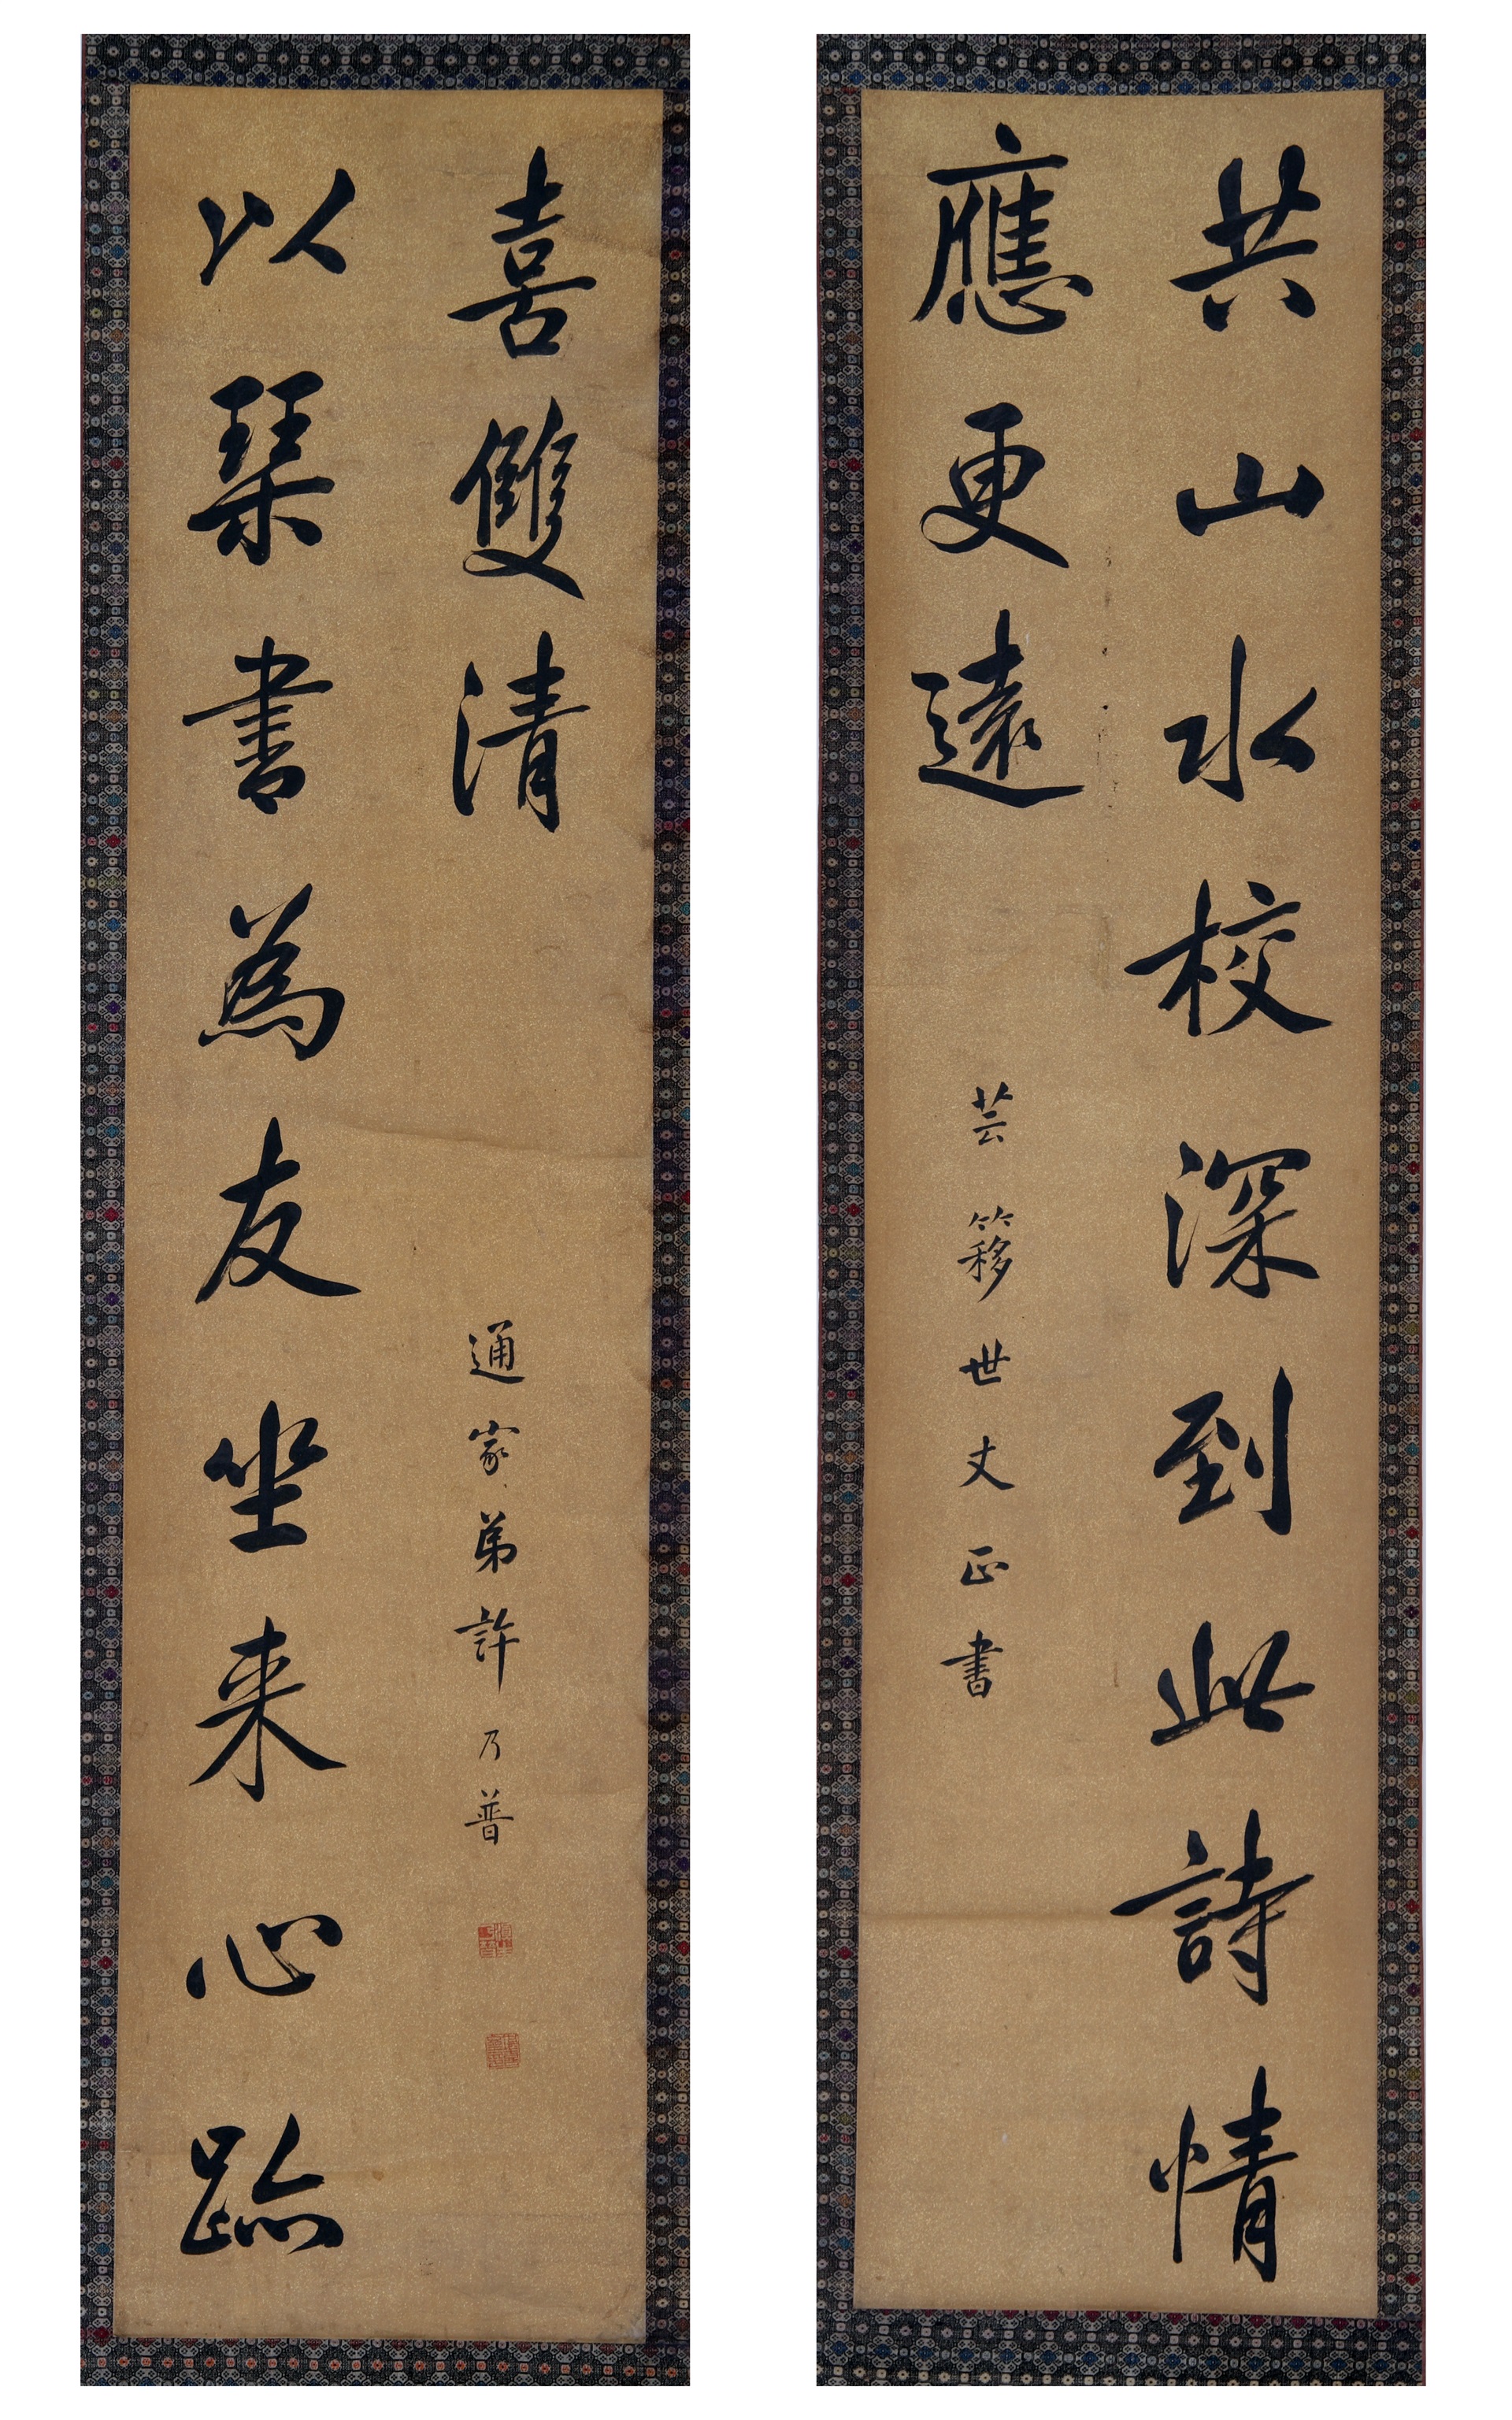 共山水校深到此詩情
應更遠
芸簃世丈正書
以琹書為友坐来心跡
喜雙清
通家弟許乃普